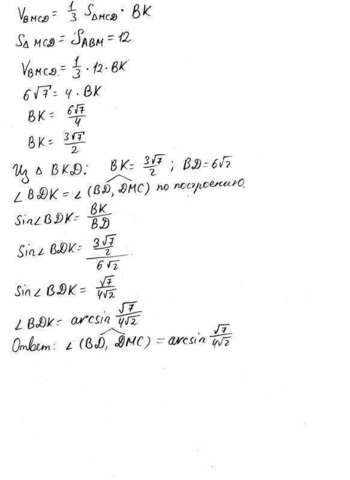 V_BMCD = 1/3 S_ΔMCD · BK
S_ΔMCD = S_ABM = 12
V_BMCD = 1/3 · 12 · BK
6√7 = 4 · BK
BK = 6√7/4
BK = 3√7/2
Из Δ BKD: BK = 3√7/2 ; BD = 6√2
∠BDK = ∠(BD, DMC) по построению.
Sin∠BDK = BK/BD
Sin∠BDK = (3√7/2)/(6√2)
Sin∠BDK = √7/(4√2)
∠BDK = arcsin √7/(4√2)
Ответ: ∠(BD, DMC) = arcsin √7/(4√2)